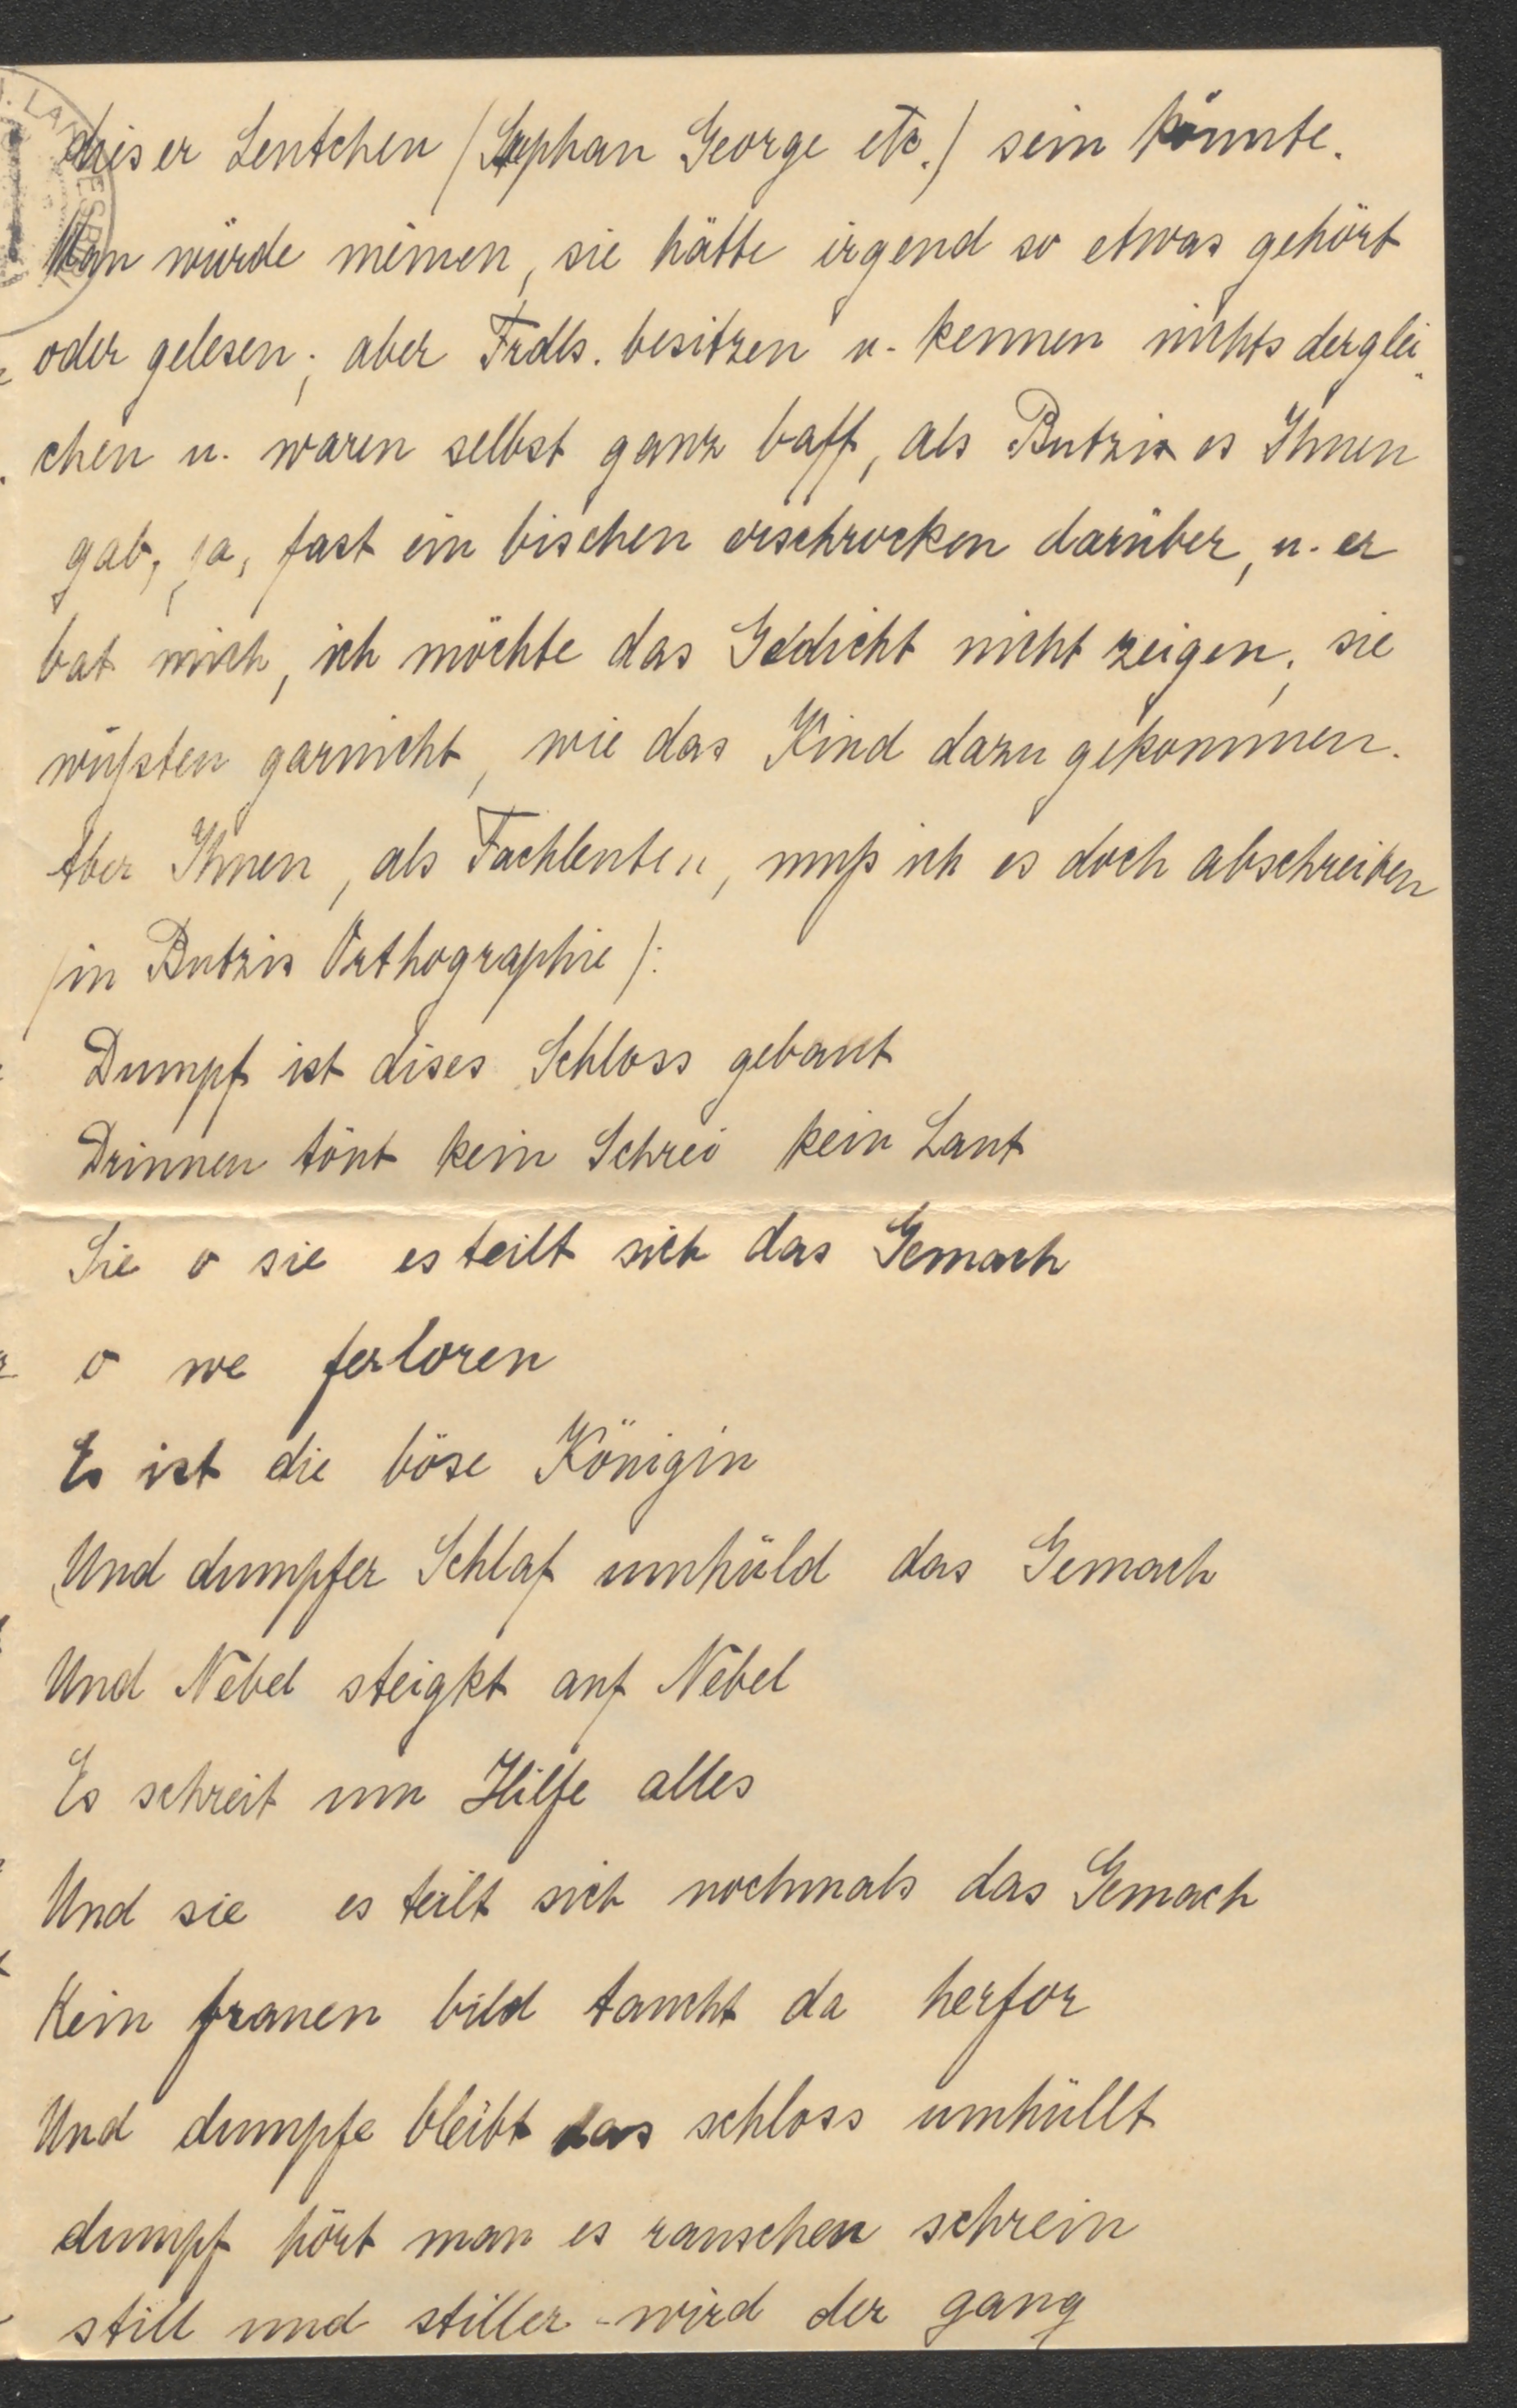 dieser Leutchen (Stephan George etc.) sein könnte.
Man würde meinen, sie hätte irgend so etwas gehört
oder gelesen; aber Frdls. besitzen u. kennen nichts derglei-
chen u. waren selbst ganz baff, als Butzis es Ihnen
gab, ja, fast ein bischen erschrocken darüber, u. er
bat mich, ich möchte das Gedicht nicht zeigen; sie
wüßten garnicht, wie das Kind dazu gekommen.
Aber Ihnen, als Fachleuten, muß ich es doch abschreiben
(in Butzis Orthographie):
Dumpf ist dises Schloss gebaut
Drinnen tönt kein Schrei kein Laut
Sie o sie es teilt sich das Gemach
o we ferloren
Es ist die böse Königin
Und dumpfer Schlaf umhüld das Gemach
Und Nebel steigkt auf Nebel
Es schreit um Hilfe alles
Und sie es teilt sich nochmals das Gemach
Kein frauen bild taucht da herfor
Und dumpfe bleibt das schloss umhüllt
dumpf hört man es rauschen schrein
still und stiller wird der gang